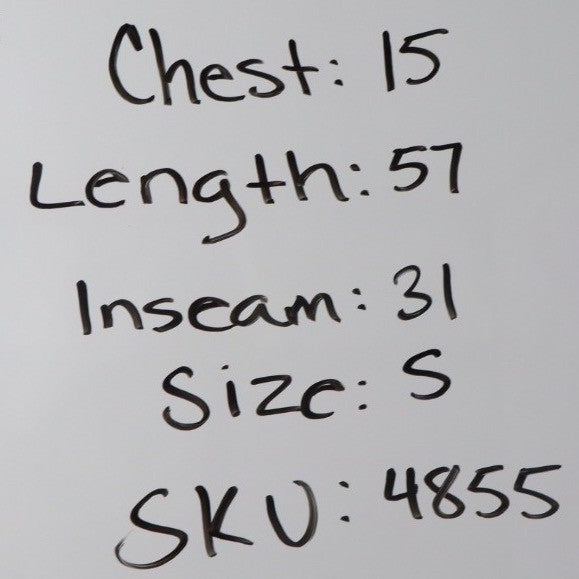 Chest: 15
Length: 57
Inseam: 31
Size: S
SKU: 4855